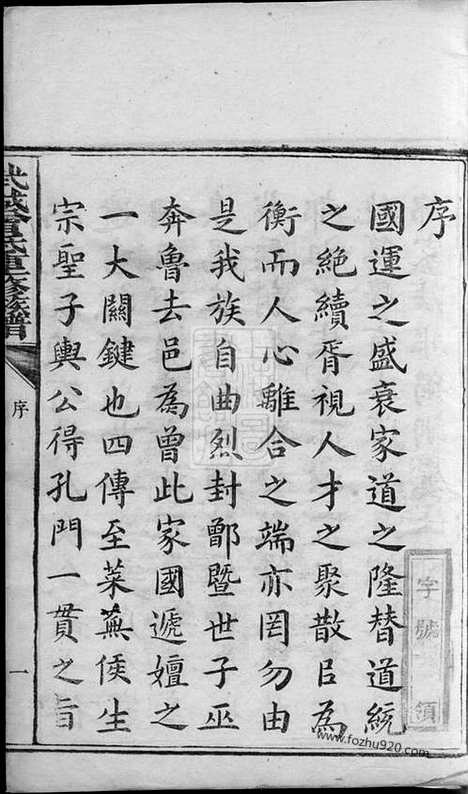 序
國運之盛衰家道之隆替道統
之絶續胥視人才之聚散㠯為
衡而人心離合之端亦罔勿由
是我族自曲烈封鄫暨世子巫
奔魯去邑為曾此家國遞嬗之
一大關鍵也四傳至萊蕪侯生
宗聖子輿公得孔門一貫之旨
武城曾氏重修族譜
序
一
字號 領
www.fozhu920.com